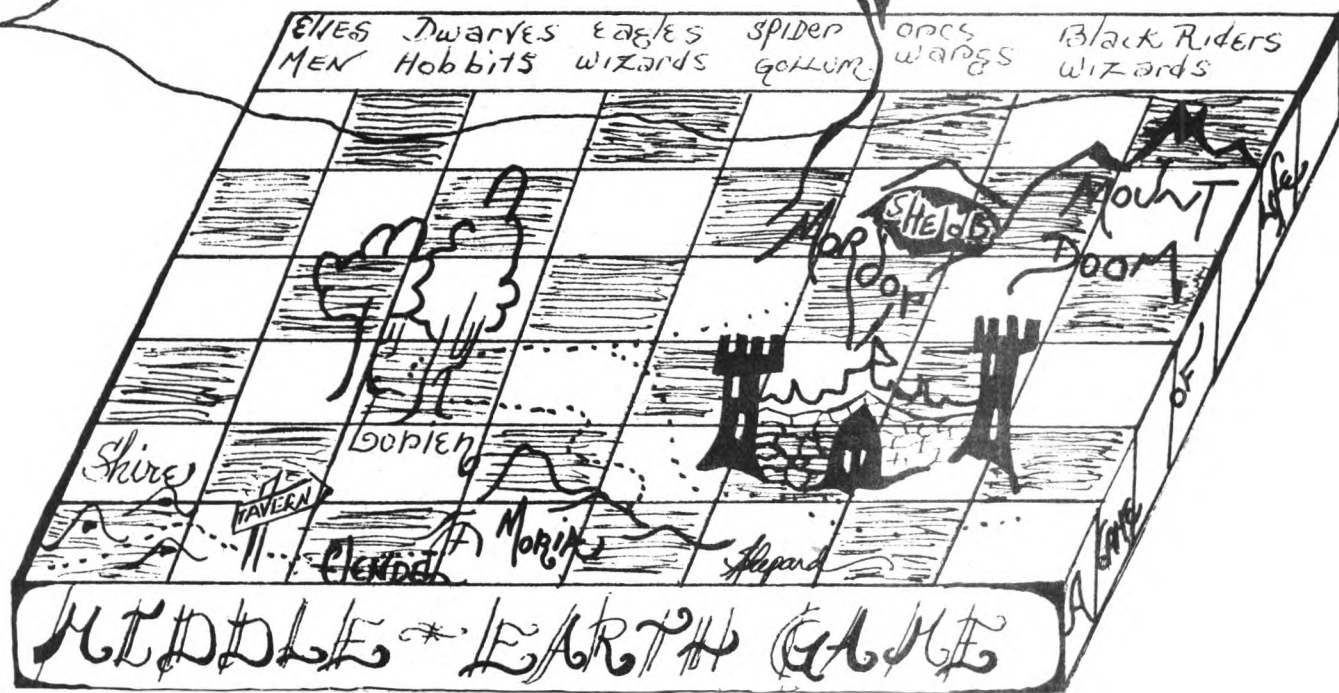 ELVES Dwarves Eagles SPIDER ORCS Black Riders
MEN Hobbits Wizards GOLLUM wargs wizards
MOUNT
SHELOB
DOOM
MORDOR
Shire
LORIEN
TAVERN
MORIA
Shepard
MIDDLE EARTH GAME
A GAME OF LIFE